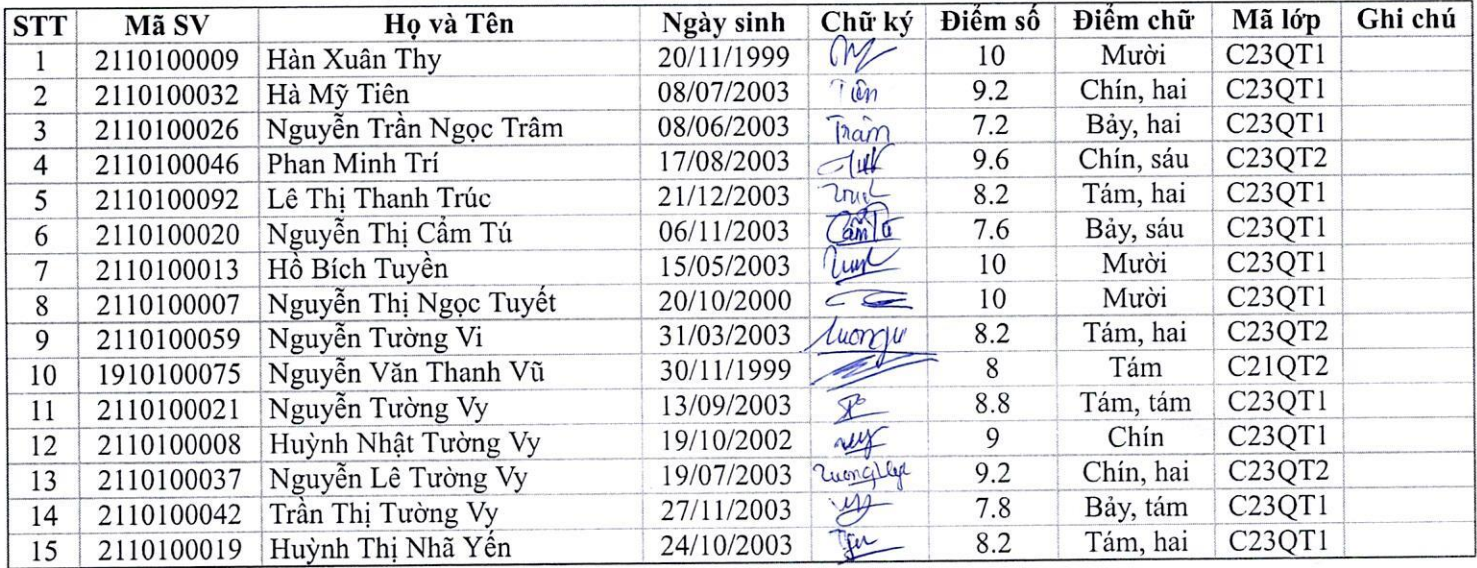 STT Mã SV Họ và Tên Ngày sinh Chữ ký Điểm số Điểm chữ Mã lớp Ghi chú
1 2110100009 Hàn Xuân Thy 20/11/1999 10 Mười C23QT1
2 2110100032 Hà Mỹ Tiên 08/07/2003 Tiên 9.2 Chín, hai C23QT1
3 2110100026 Nguyễn Trần Ngọc Trâm 08/06/2003 Trâm 7.2 Bảy, hai C23QT1
4 2110100046 Phan Minh Trí 17/08/2003 9.6 Chín, sáu C23QT2
5 2110100092 Lê Thị Thanh Trúc 21/12/2003 8.2 Tám, hai C23QT1
6 2110100020 Nguyễn Thị Cẩm Tú 06/11/2003 Cẩm Tú 7.6 Bảy, sáu C23QT1
7 2110100013 Hồ Bích Tuyền 15/05/2003 10 Mười C23QT1
8 2110100007 Nguyễn Thị Ngọc Tuyết 20/10/2000 10 Mười C23QT1
9 2110100059 Nguyễn Tường Vi 31/03/2003 8.2 Tám, hai C23QT2
10 1910100075 Nguyễn Văn Thanh Vũ 30/11/1999 8 Tám C21QT2
11 2110100021 Nguyễn Tường Vy 13/09/2003 8.8 Tám, tám C23QT1
12 2110100008 Huỳnh Nhật Tường Vy 19/10/2002 9 Chín C23QT1
13 2110100037 Nguyễn Lê Tường Vy 19/07/2003 9.2 Chín, hai C23QT2
14 2110100042 Trần Thị Tường Vy 27/11/2003 7.8 Bảy, tám C23QT1
15 2110100019 Huỳnh Thị Nhã Yến 24/10/2003 8.2 Tám, hai C23QT1